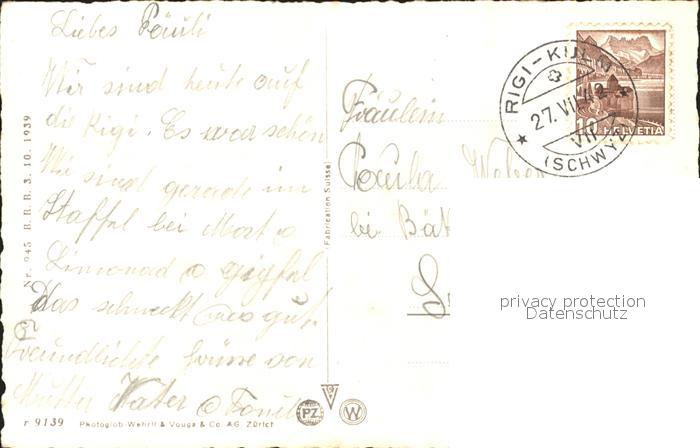 Liebes Päuli
Wir sind heute auf
die Rigi. Es war schön
Wir sind gerade im
Staffel bei Most o
Limonad o gigfel
Das schmeckt uns gut.
Freundlichte Grüsse von
Mutter Vater o
Nr. 945 B. R. B. 3. 10. 1939
(Fabrication Suisse)
Fräulein
Paula Weber
bei
RIGI-KULM
27. VII. 42
VII
(SCHWYZ)
10 HELVETIA
privacy protection
Datenschutz
r 9139 Photoglob-Wehrli & Vouga & Co. AG. Zürich
PZ W